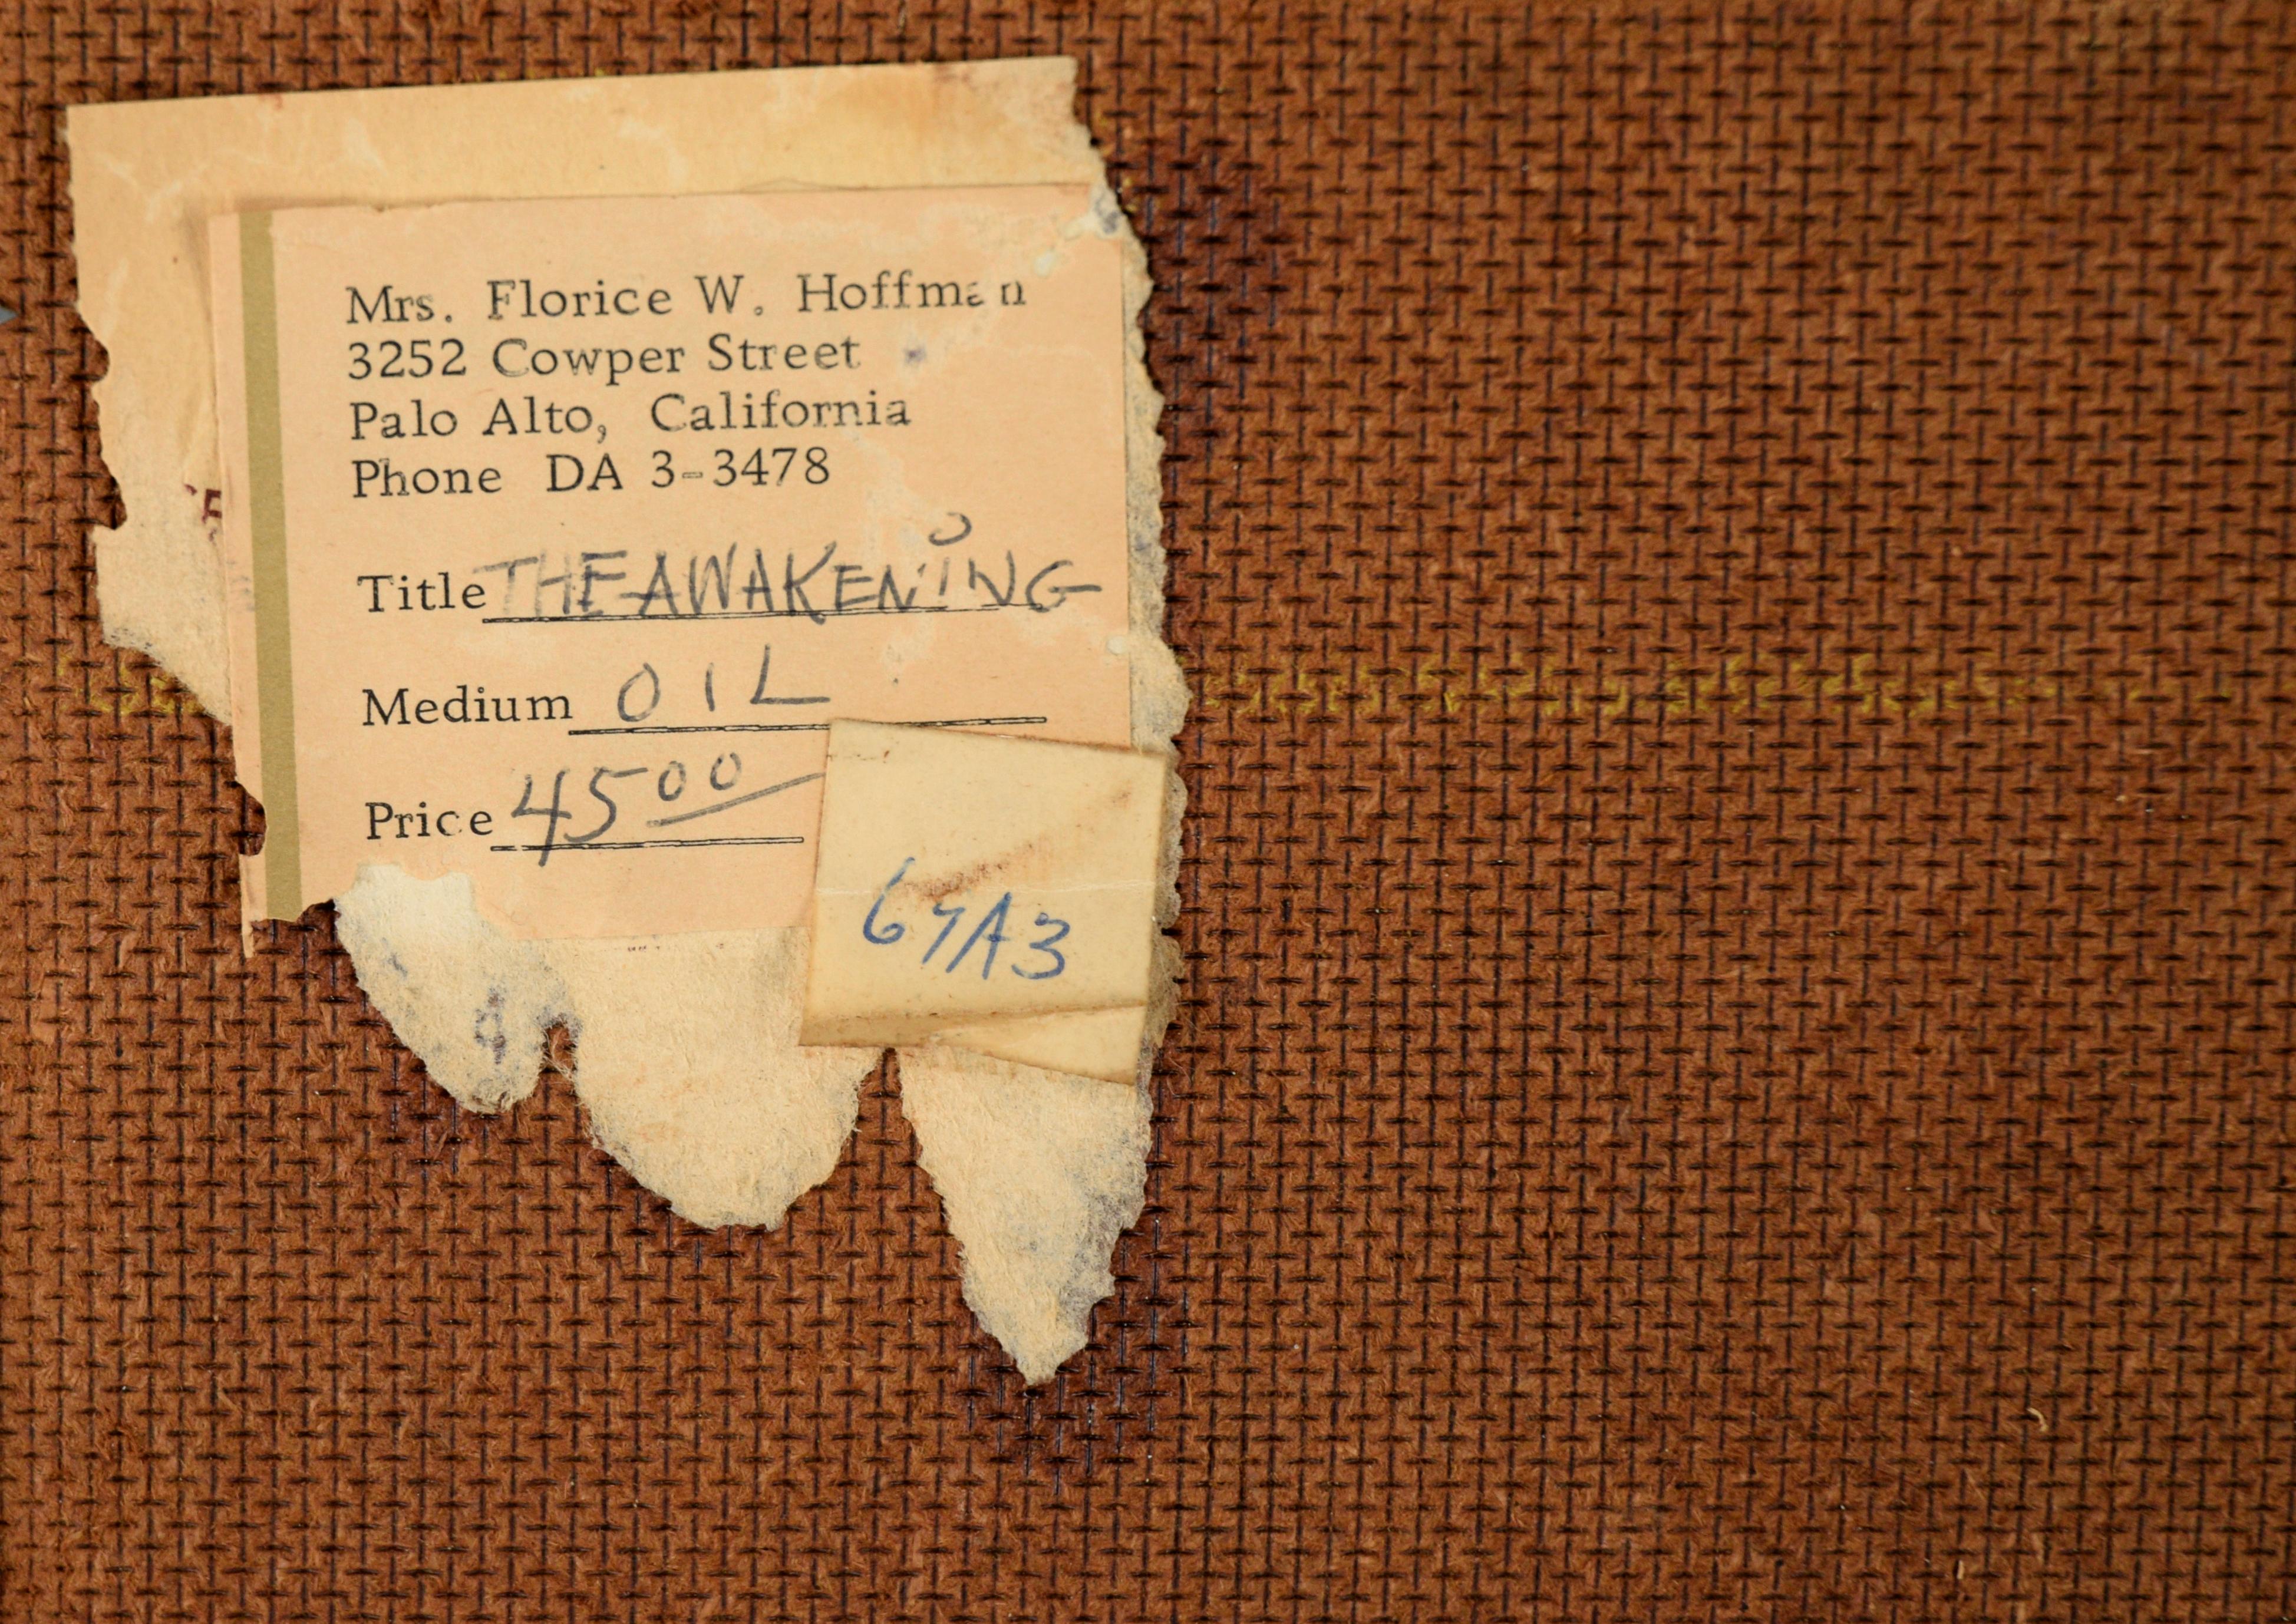 Mrs. Florice W. Hoffman
3252 Cowper Street
Palo Alto, California
Phone DA 3-3478
Title THE AWAKENING
Medium OIL
Price 45 00